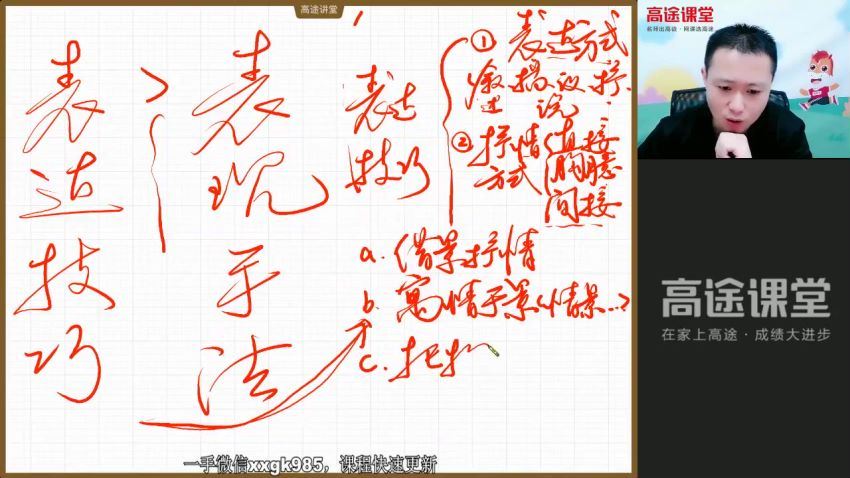 高途讲堂
表达技巧
>
表现手法
表达技巧
① 表达方式
叙描议抒
述 说
② 抒情(直接
方式 胸臆
间接
a. 借景抒情
b. 寓情于景(情景…)
c. 托物
一手微信xxgk985，课程快速更新
高途课堂
名师出高徒·网课选高途
高途课堂
在家上高途·成绩大进步